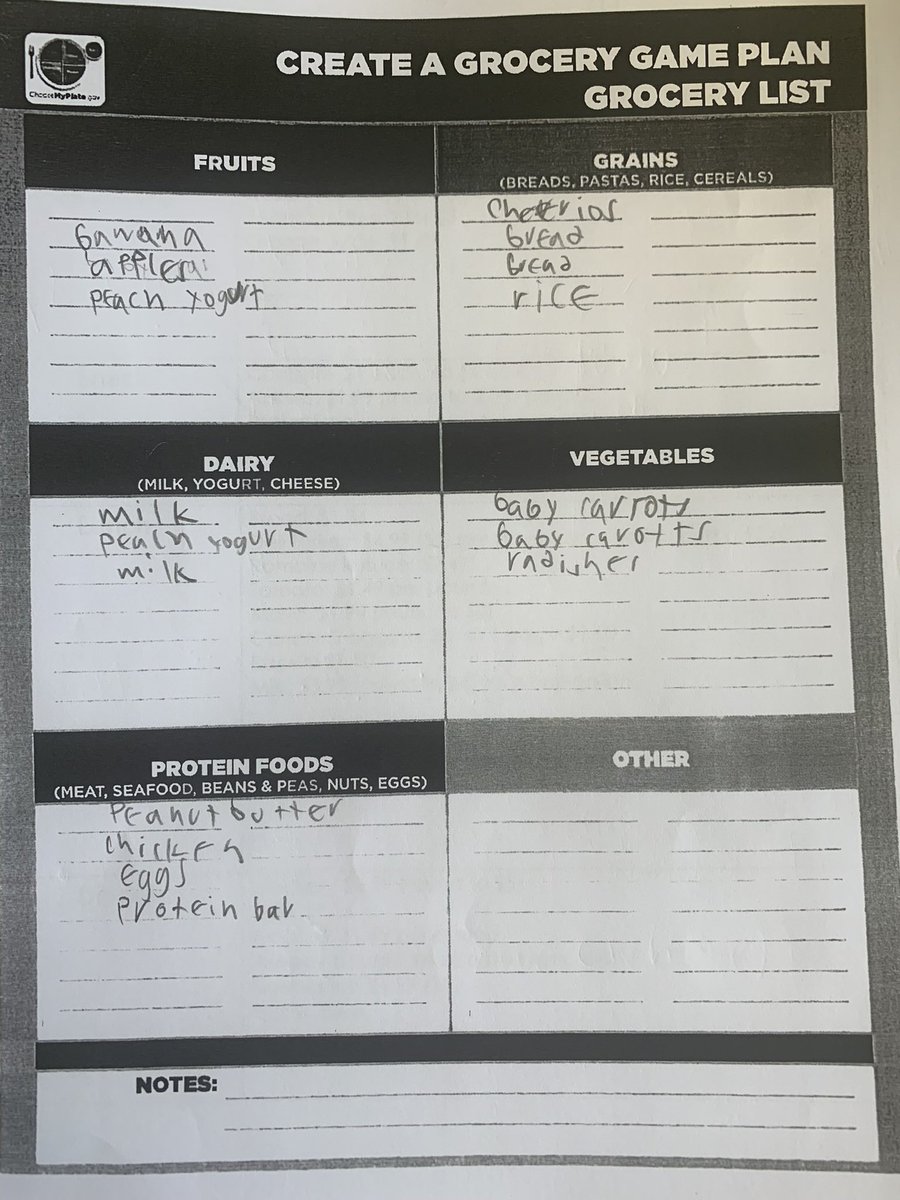 ChooseMyPlate.gov
CREATE A GROCERY GAME PLAN
GROCERY LIST
FRUITS
banana
apples
peach yogurt
GRAINS
(BREADS, PASTAS, RICE, CEREALS)
Cheerios
bread
bread
rice
DAIRY
(MILK, YOGURT, CHEESE)
milk
peach yogurt
milk
VEGETABLES
baby carrots
baby carotts
radishes
PROTEIN FOODS
(MEAT, SEAFOOD, BEANS & PEAS, NUTS, EGGS)
Peanut butter
chicken
eggs
protein bar
OTHER
NOTES: